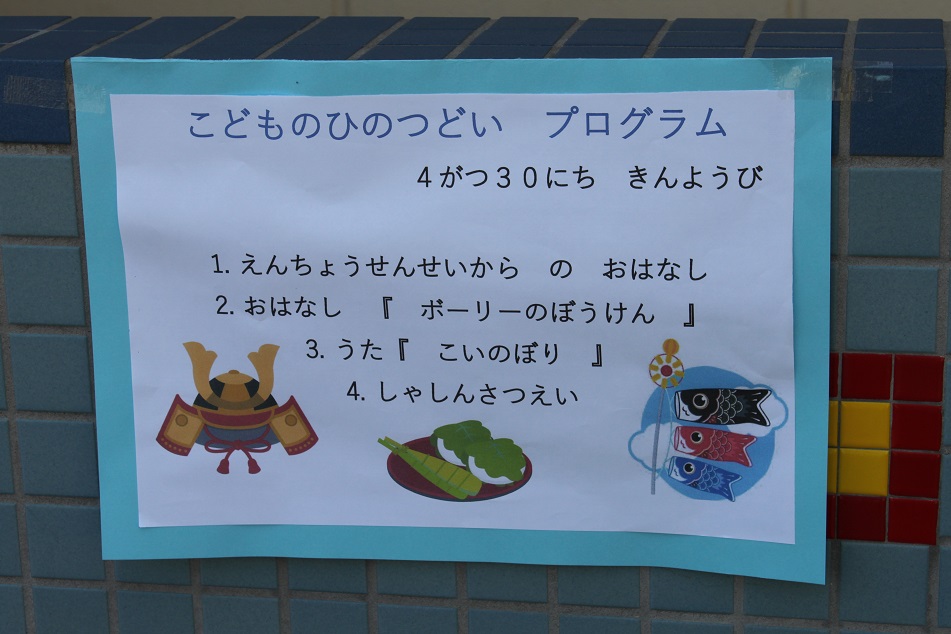 こどものひのつどい　プログラム
4がつ30にち　きんようび
1. えんちょうせんせいから　の　おはなし
2. おはなし　『　ボーリーのぼうけん　』
3. うた『　こいのぼり　』
4. しゃしんさつえい